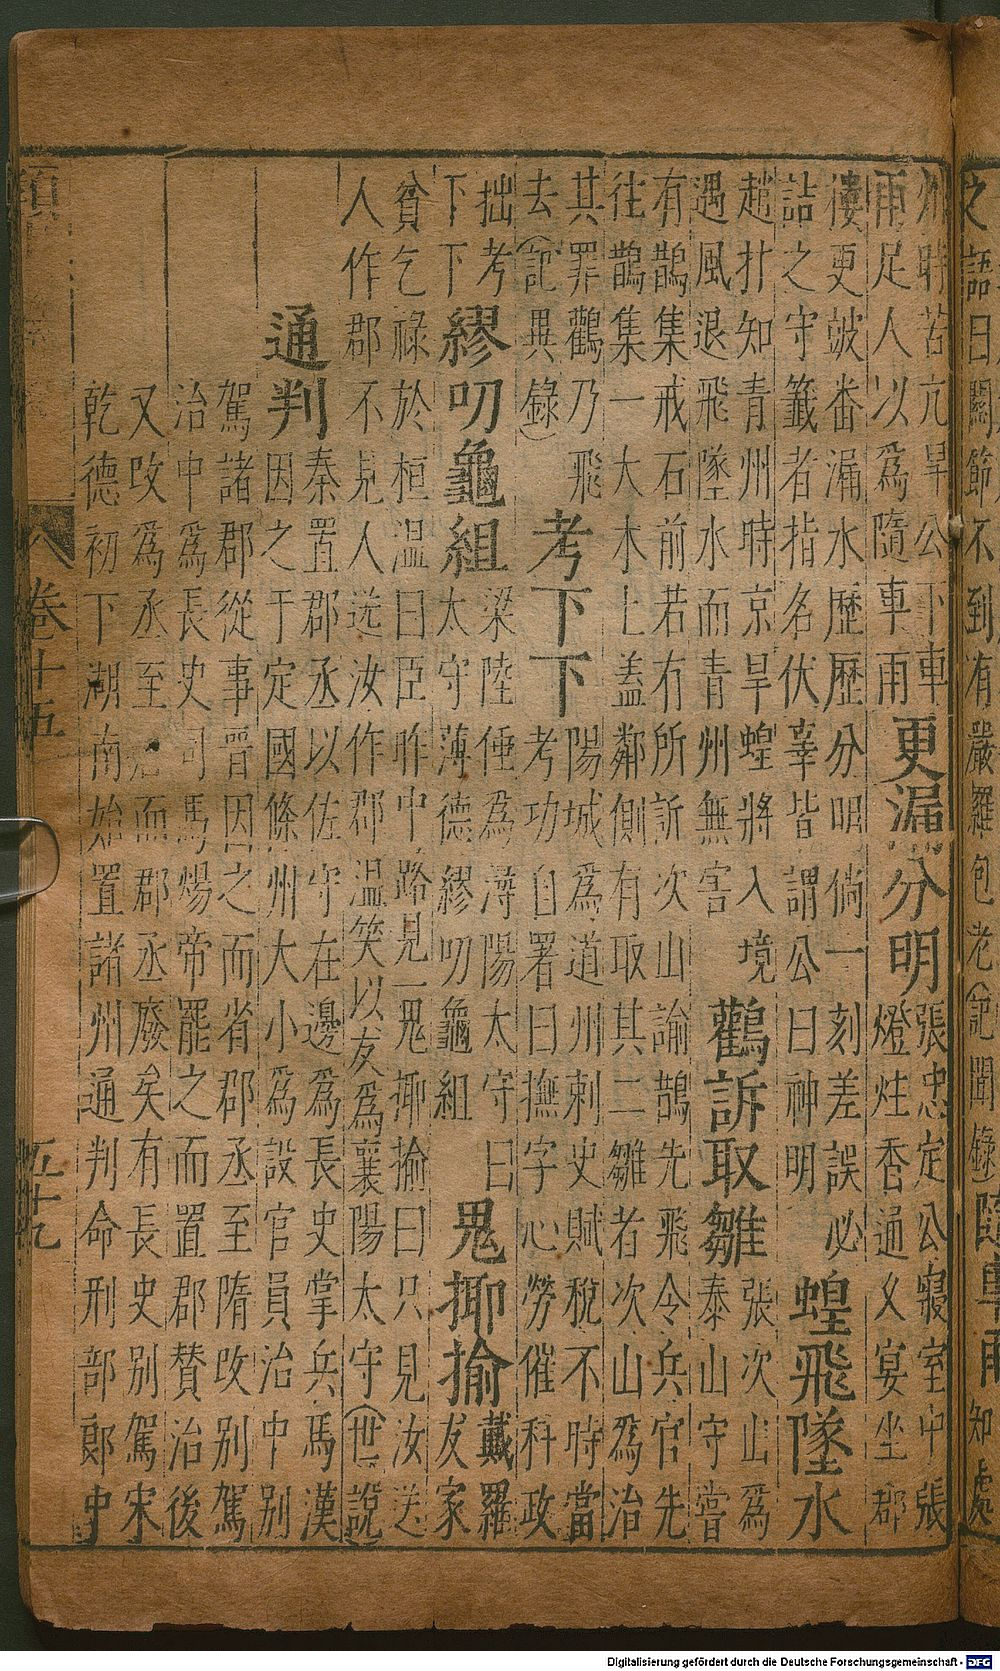 之語曰關節不到有嚴羅包老(記聞錄)隨車雨知處
州時苦亢旱公下車
雨足人以爲隨車雨
更漏分明
張忠定公寢室中張
燈炷香通夕宴坐郡
樓更皷畨漏水歴歴分明倘一刻差誤必
詰之守籤者指名伏辜皆謂公曰神明
蝗飛墜水
趙抃知青州時京旱蝗將入境
遇風退飛墜水而青州無害
鸛訴取雛
張次山爲
泰山守嘗
有鵲集戒石前若有所訢次山諭鵲先飛令兵官先
往鵲集一大木上蓋鄰側有取其二雛者次山爲治
其罪鸛乃飛
去(記異錄)
考下下
陽城爲道州刺史賦稅不時當
考功自署曰撫字心勞催科政
拙考
下下
繆叨龜組
梁陸倕爲潯陽太守曰
太守薄德繆叨龜組
鬼揶揄
戴羅
友家
貧乞祿於桓溫曰臣昨中路見一鬼揶揄曰只見汝送
人作郡不見人送汝作郡溫笑以友爲襄陽太守(世說)
通判
秦置郡丞以佐守在邊爲長史掌兵馬漢
因之于定國條州大小爲設官員治中別
駕諸郡從事晉因之而省郡丞至隋改別駕
治中爲長史司馬煬帝罷之而置郡賛治後
又改爲丞至唐而郡丞廢矣有長史別駕宋
乾德初下湖南始置諸州通判命刑部郎中
類
卷十五
五十九
Digitalisierung gefördert durch die Deutsche Forschungsgemeinschaft - DFG